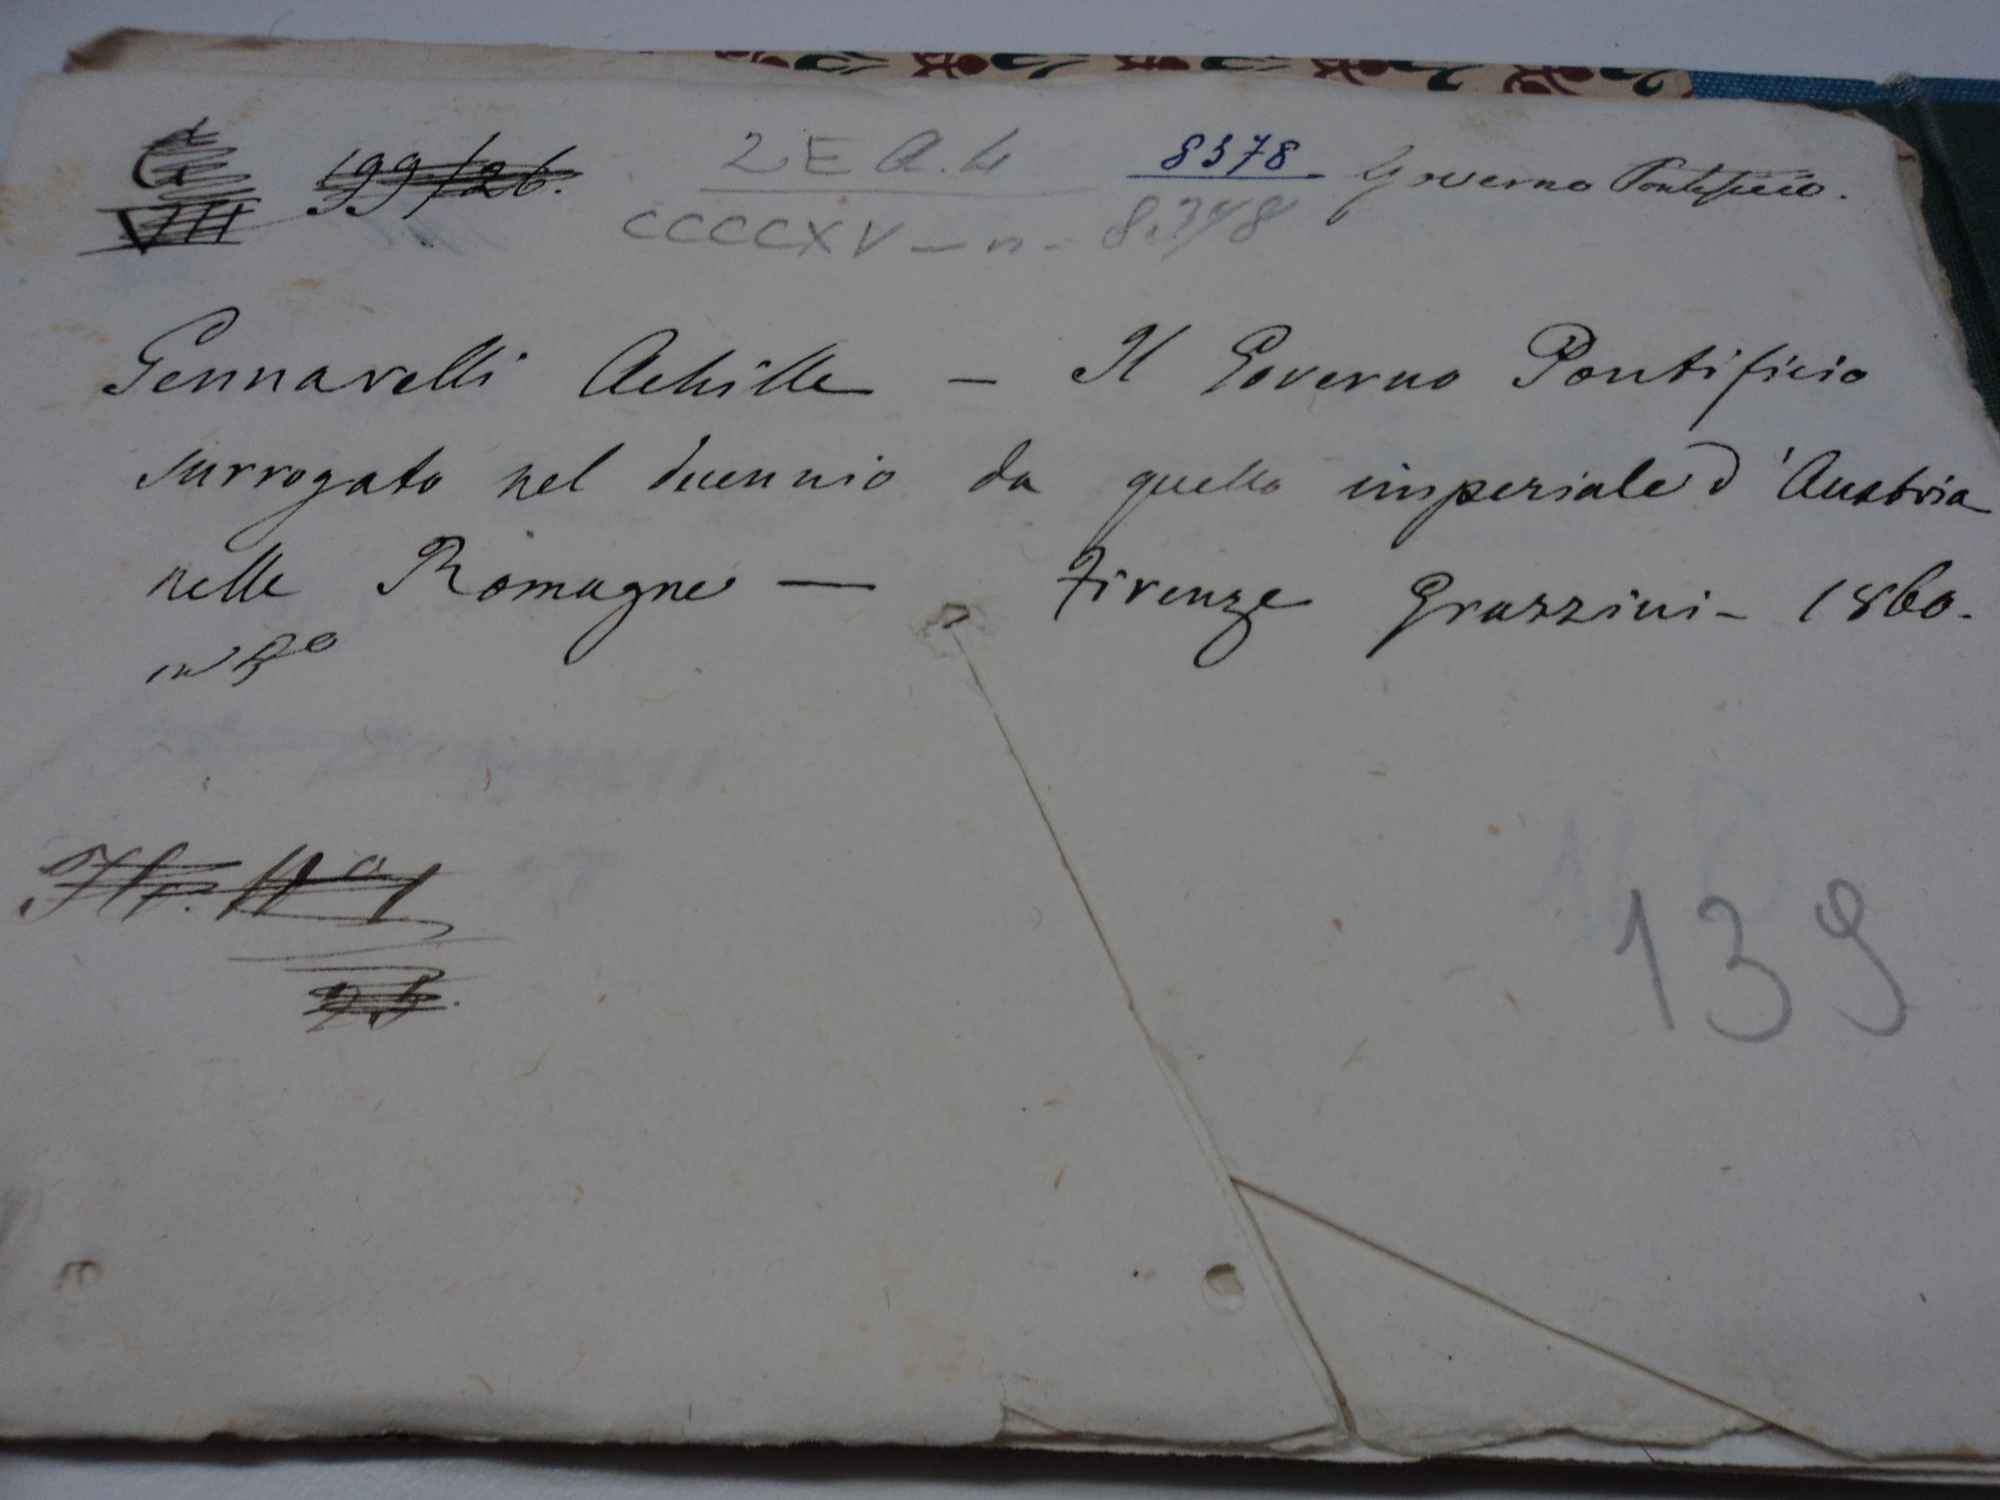 G 199/26. 2 E a. 4 8378 Governo Pontificio.
VIII CCCCXV — n - 8378
Gennarelli Achille — Il Governo Pontificio
surrogato nel decennio da quello imperiale d'Austria
nelle Romagne — Firenze Grazzini - 1860.
in 8º
139